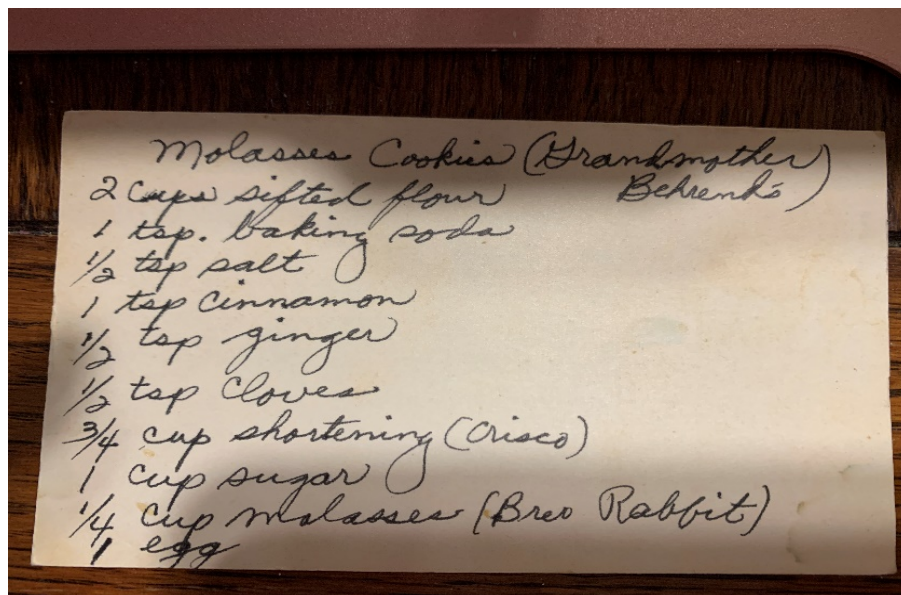 Molasses Cookies (Grandmother
Behrend's)
2 cups sifted flour
1 tsp. baking soda
1/2 tsp salt
1 tsp cinnamon
1/2 tsp ginger
1/2 tsp cloves
3/4 cup shortening (Crisco)
1 cup sugar
1/4 cup molasses (Brer Rabbit)
1 egg